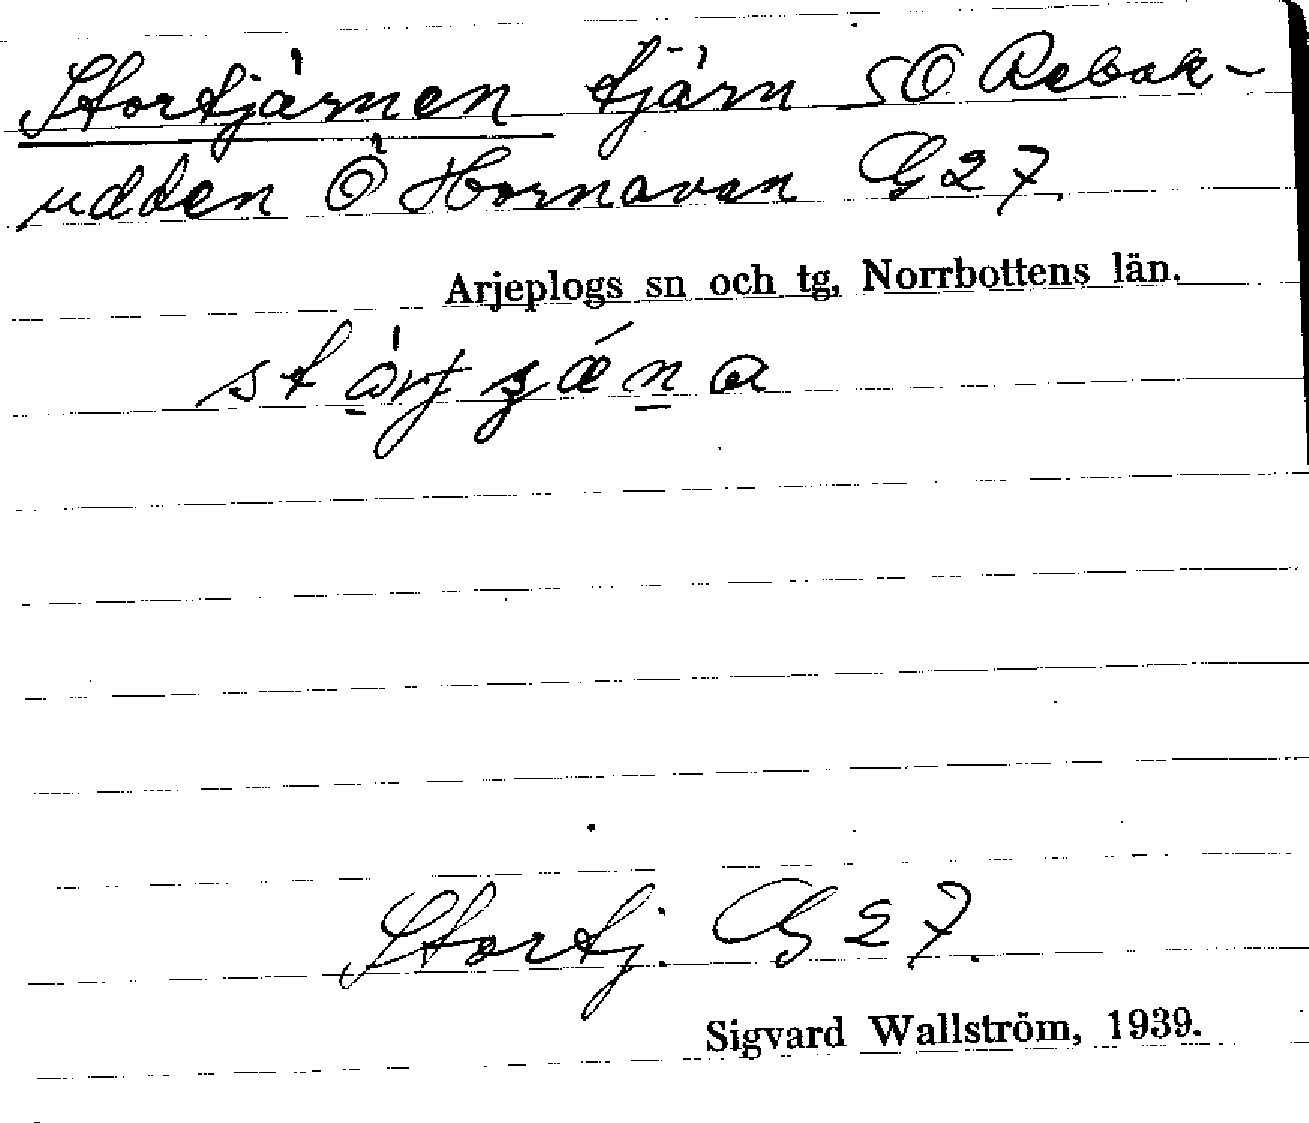 Stortjärnen tjärn SO Rebak-
udden Ö Hornavan G 27
Arjeplogs sn och tg, Norrbottens län.
Stortj. G 27.
Sigvard Wallström, 1939.